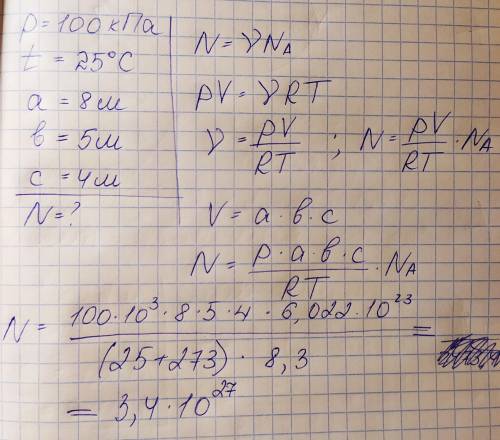 p = 100 кПа
t = 25°C
a = 8м
в = 5м
c = 4м
N = ?
N = νN_A
pV = νRT
ν = pV/RT ; N = pV/RT · N_A
V = a · в · c
N = p · a · в · c/RT · N_A
N = 100 · 10³ · 8 · 5 · 4 · 6,022 · 10²³/(25 + 273) · 8,3 =
= 3,4 · 10²⁷